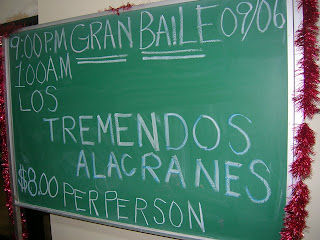 9:00 P.M GRAN BAILE 09/06
1:00 AM
LOS
TREMENDOS
ALACRANES
$8.00 PER PERSON